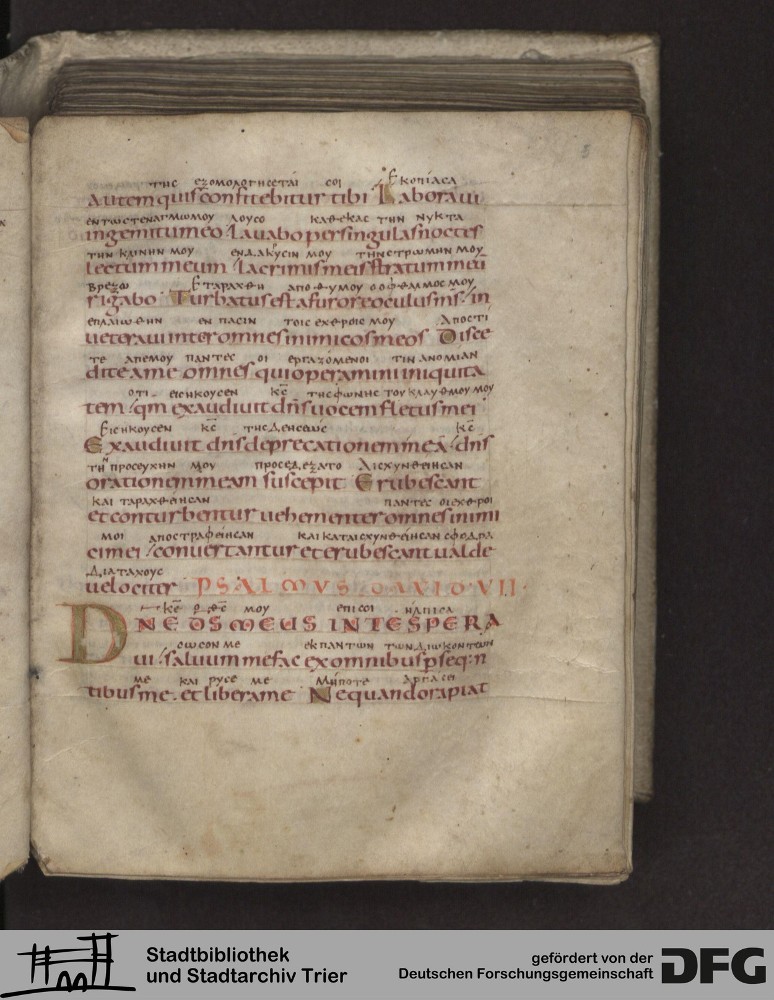 5
της εξομολογησεται σοι Εκοπιασα
autem quis confitebitur tibi Laboraui
εν τω στεναγμω μου λουσο καθεκας την νυκτα
ingemitu meo lauabo per singulas noctes
την κλινην μου εν δακυσιν μου την στρωμην μου
lectum meum lacrimis meis stratum meu
βρεξω Εταραχθη απο θυμου ο οφθαλμος μου
rigabo Turbatus est a furore oculus ms in
επλαιωθην εν πασιν τοις εχθροις μου Αποστι
ueteraui inter omnes inimicos meos Disce
τε απ εμου παντες οι εργαζομενοι τιν ανομιαν
dite a me omnes qui operamini iniquita
οτι εισηκουσεν κε της φωνης του κλαυθμου μου
tem qm exaudiuit dns uocem fletus mei
Εισηκουσεν κε της δεησεως κε
Exaudiuit dns deprecationem mea dns
τη προσευχην μου προσεδεξατο Αισχυνθειησαν
orationem meam suscepit Erubescant
και ταραχθειησαν παντες οι εχθροι
et conturbentur uehementer omnes inimi
μοι αποστραφειησαν και καταισχυνθειησαν σφοδρα
ci mei conuertantur et erubescant ualde
δια ταχους
uelociter PSALMUS DAUID VII
κε ο θε μου επι σοι ηλπισα
DNE DS MEUS IN TE SPERA
σωσον με εκ παντων των διωκοντων
ui saluum me fac ex omnibus pseq:n
με και ρυσε με Μηποτε αρπασει
tibus me. et libera me Nequando rapiat
Stadtbibliothek
und Stadtarchiv Trier
gefördert von der
Deutschen Forschungsgemeinschaft
DFG